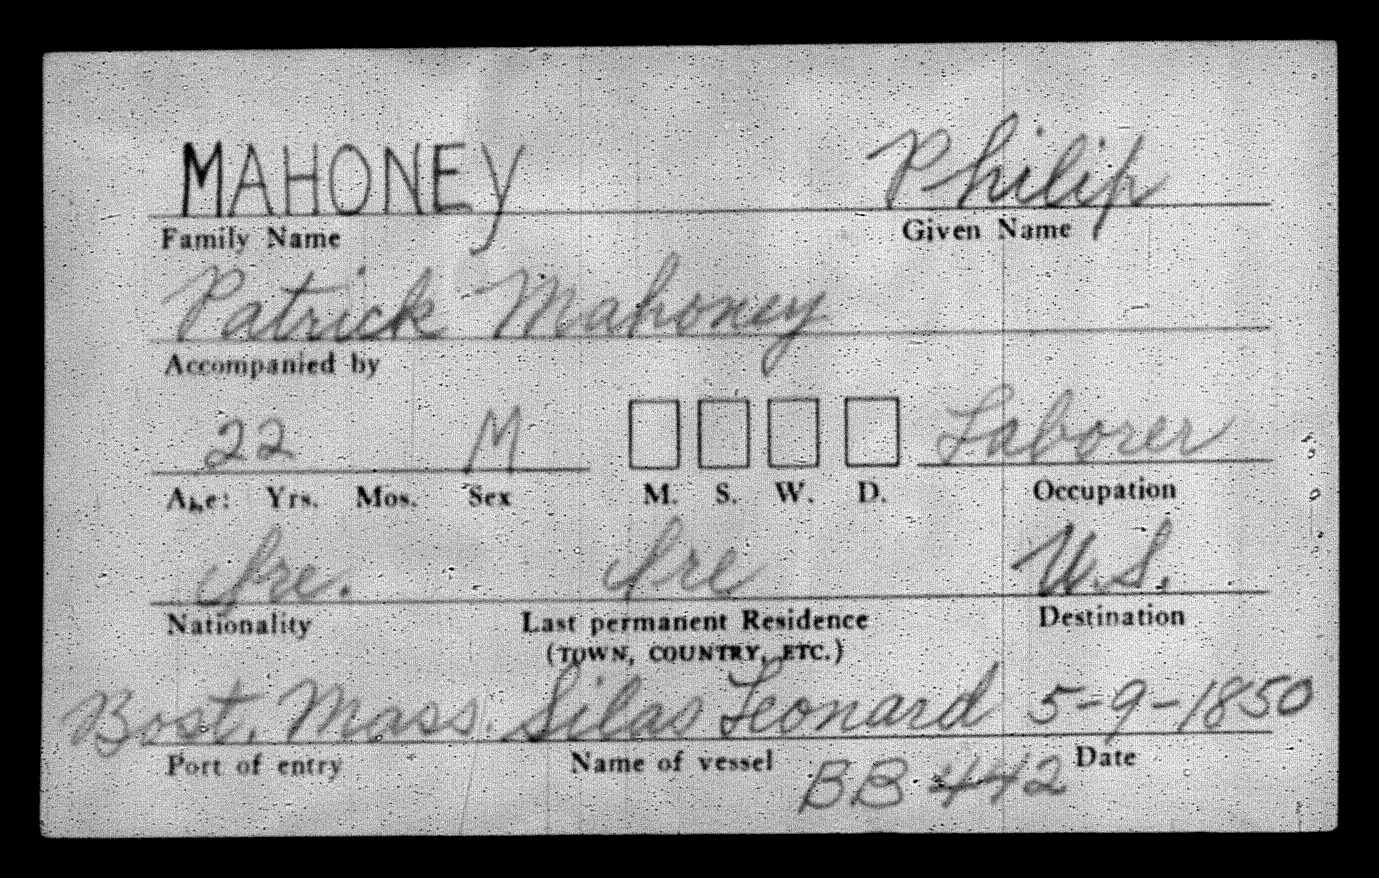 MAHONEY Philip
Family Name Given Name
Patrick Mahoney
Accompanied by
22 M Laborer
Age: Yrs. Mos. Sex M. S. W. D. Occupation
Ire. Ire U.S.
Nationality Last permanent Residence Destination
(TOWN, COUNTRY, ETC.)
Bost. Mass. Silas Leonard 5-9-1850
Port of entry Name of vessel Date
BB 442